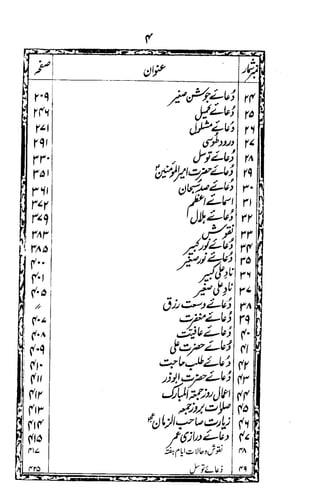 ۴
نمبر شمار عنوان صفحہ
۲۴ دُعائے جوشن صغیر ۲۰۹
۲۵ دُعائے کمیل ۲۴۶
۲۶ دُعائے مشلول ۲۷۱
۲۷ درود طوسی ۲۹۱
۲۸ دُعائے توسل ۳۳۰
۲۹ دُعائے حضرت امیرالمومنینؑ ۳۵۱
۳۰ دُعائے صد سبحان ۳۶۱
۳۱ اسمائے اعظم ۳۷۲
۳۲ دُعائے ہلال ۳۷۹
۳۳ نقوش ۳۸۳
۳۴ دُعائے نور کبیر ۳۸۵
۳۵ دُعائے نور صغیر ۴۰۰
۳۶ نادِ علی کبیر ۴۰۱
۳۷ نادِ علی صغیر ۴۰۵
۳۸ دُعائے وسعت رزق 〃
۳۹ دُعائے مغفرت ۴۰۷
۴۰ دُعائے عافیت ۴۰۸
۴۱ دُعائے حضرت علی ۴۰۹
۴۲ دُعائے طلب حاجت ۴۱۰
۴۳ دُعائے حضرت ابوذر ۴۱۱
۴۴ اعمال روز جمعۃ المبارک ۴۱۲
۴۵ صلوات بروز جمعہ ۴۱۳
۴۶ زیارت صاحب الزمان ۴۱۴
۴۷ دعائے درازی عمر ۴۱۵
۴۸ نقوش و حالات ایام ہفتہ ۴۱۷
۴۹ دُعائے توسل ۴۲۵